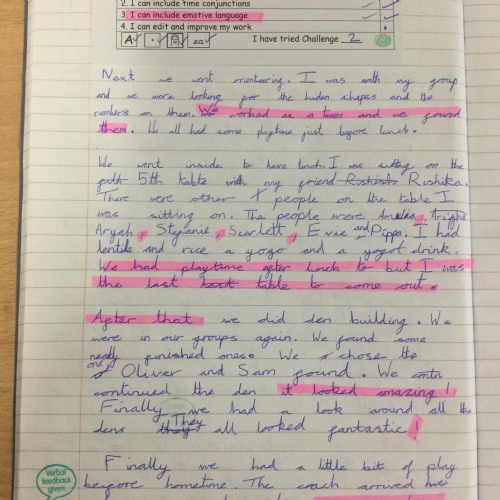 2. I can include time conjunctions
3. I can include emotive language
4. I can edit and improve my work
I have tried Challenge 2
Next we went orienteering. I was with my group
and we were looking for the hiden shapes and the
numbers on them. We worked as a team and we found
them. We all had some playtime just before lunch.
We went inside to have lunch. I was sitting on the
5th table with my friend Rishika.
There were other people on the table I
was sitting on. The people were Amelia,
Aryah, Stefanie, Scarlett, Evie and Pippa. I had
lentils and rice a yogo and a yogot drink.
We had playtime after lunch to but I was
the last table to come out.
After that we did den building. We
were in our groups again. We found some
ready finished ones. We chose the
one Oliver and Sam found. We
continued the den it looked amazing!
Finally we had a look around all the
dens They all looked fantastic!
Finally we had a little bit of play
before hometime. The coach arrived
Verbal
feedback
given